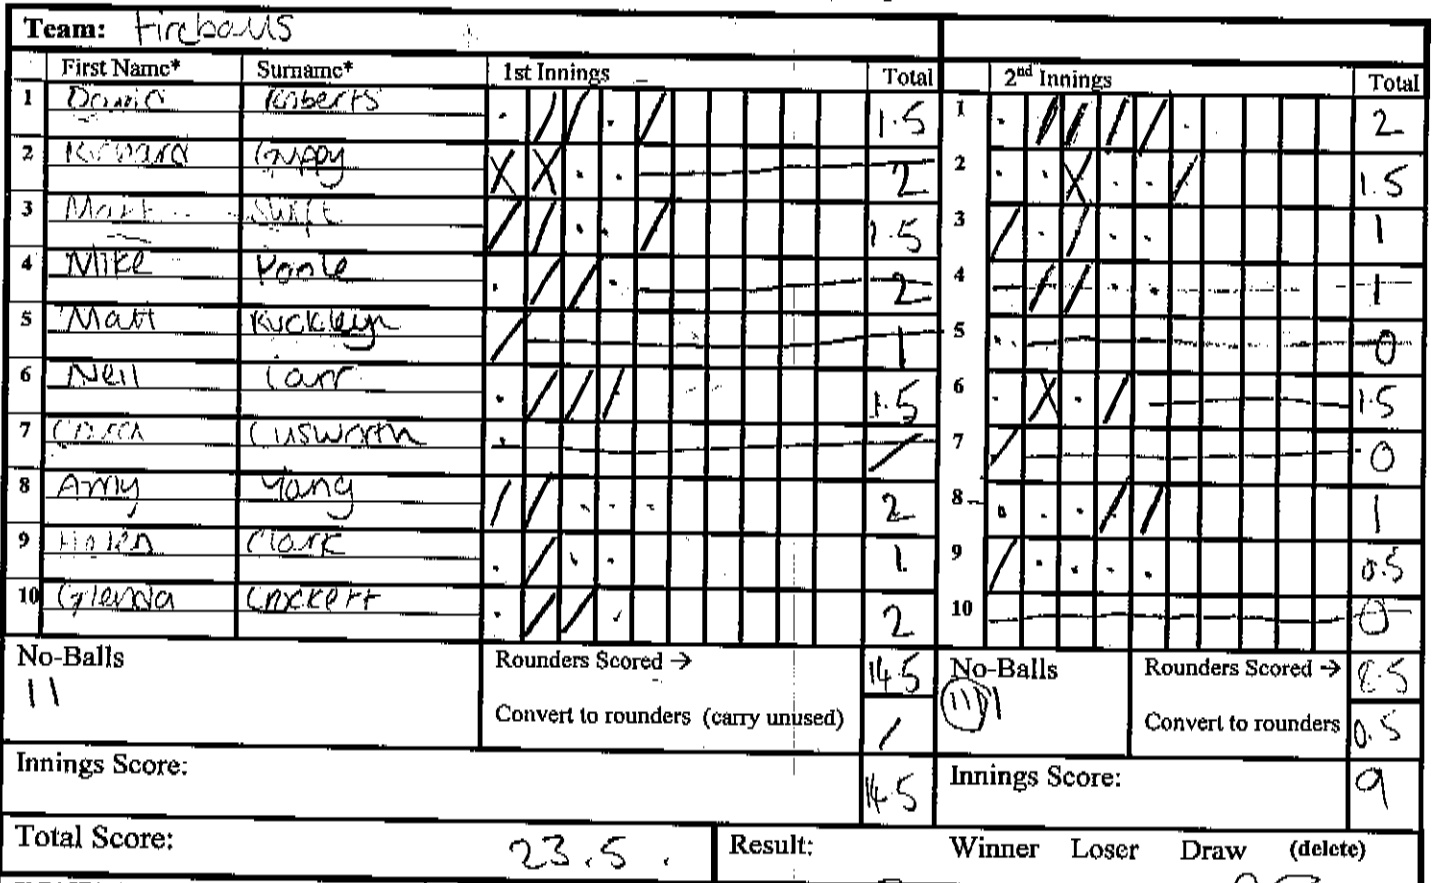 Team: Fireballs
First Name* Surname* 1st Innings Total 2nd Innings Total
1 David Roberts 1.5 1 2
2 Richard Guppy 2 2 1.5
3 Matt Swift 1.5 3 1
4 Mike Poole 2 4 1
5 Matt Ruckleyn 1 5 0
6 Neil Carr 1.5 6 1.5
7 Cusworth / 7 0
8 Amy Yang 2 8 1
9 Helen Clark 1 9 0.5
10 Glenda Crockett 2 10 0
No-Balls Rounders Scored → 14.5 No-Balls Rounders Scored → 8.5
11 Convert to rounders (carry unused) / Convert to rounders 0.5
Innings Score: 14.5 Innings Score: 9
Total Score: 23.5. Result: Winner Loser Draw (delete)